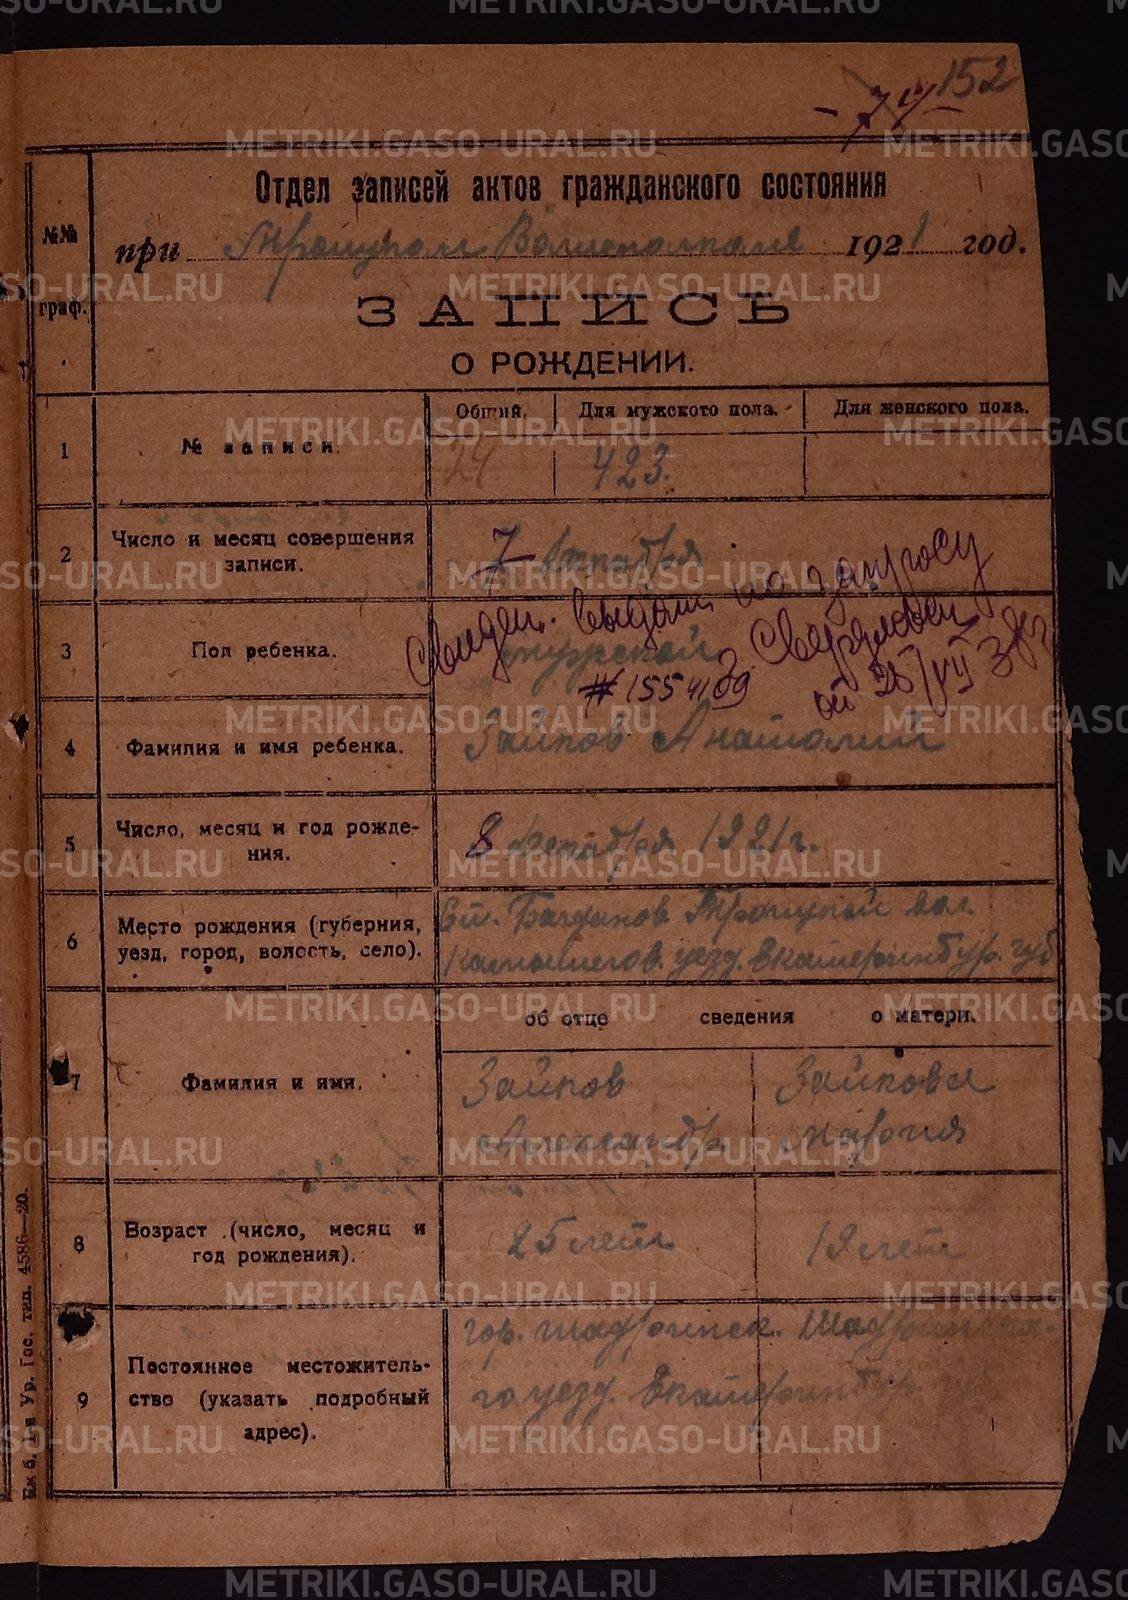 152
Отдел записей актов гражданского состояния
при Троицком Волисполкоме 1921 год.
№№ граф.
ЗАПИСЬ
О РОЖДЕНИИ.
Общий. Для мужского пола. Для женского пола.
1 № записи. 24 423.
2 Число и месяц совершения
записи. 7
3 Пол ребенка. мужской
Свидет. выдан по запросу
г. Свердловск
#1554109 от 25/VII 38 г
4 Фамилия и имя ребенка. Зайков Анатолий
5 Число, месяц и год рожде-
ния. 8 1921 г.
6 Место рождения (губерния,
уезд, город, волость, село). Ст. Богданов. Троицкой вол.
Камышлов. уезд. Екатеринбур. губ
об отце сведения о матери.
7 Фамилия и имя. Зайков Зайкова
Александр. Мария
8 Возраст (число, месяц и
год рождения). 25 лет 19 лет
9 Постоянное местожитель-
ство (указать подробный
адрес).
гор. Шадринск. Шадринско-
го уезд. Екатеринбур.
Екб. 1-я Ур. Гос. тип. 4586—20.
METRIKI.GASO-URAL.RU